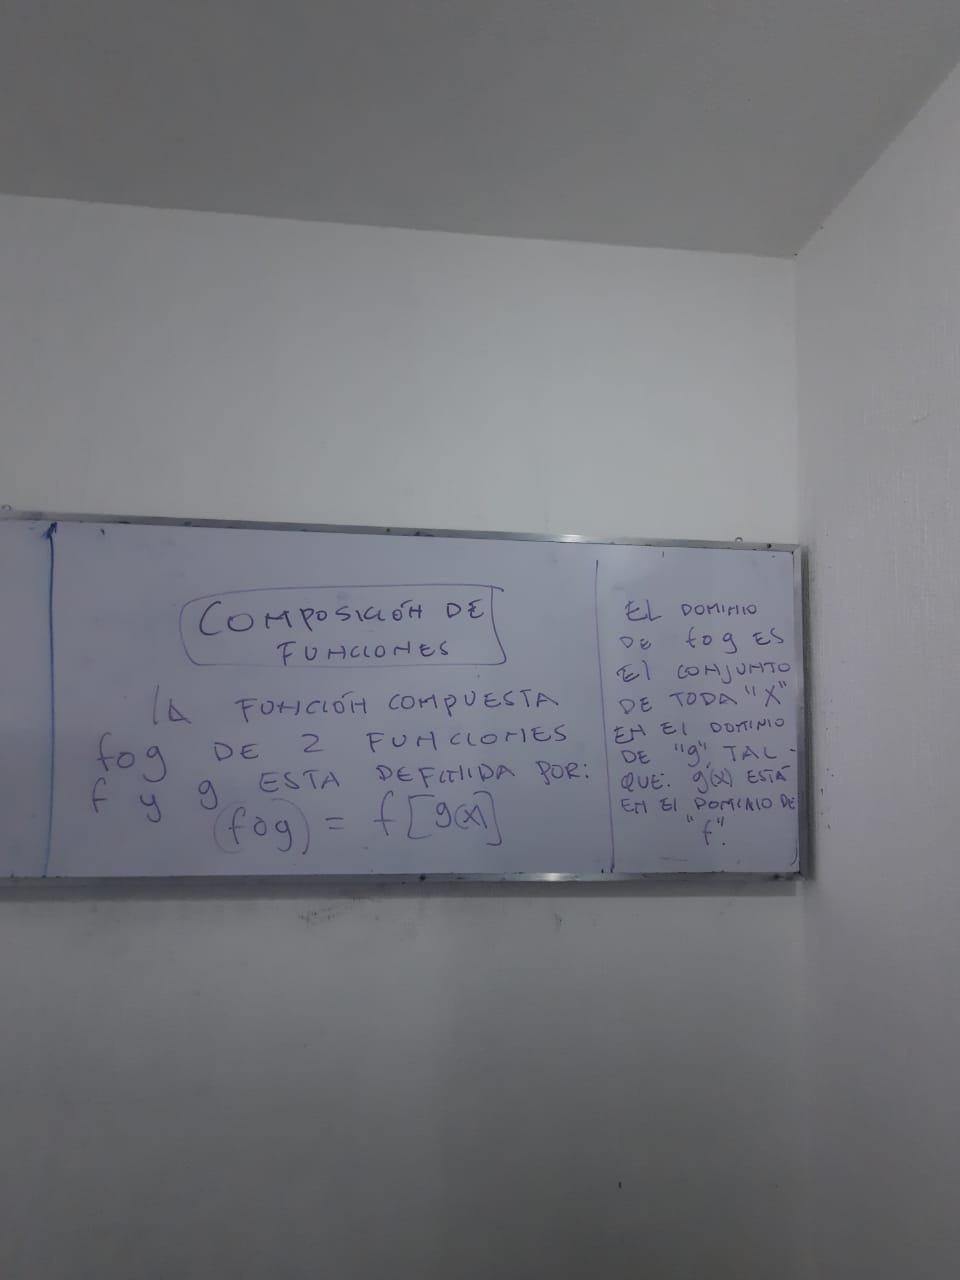 COMPOSICIÓN DE
FUNCIONES
la FUNCIÓN COMPUESTA
fog DE 2 FUNCIONES
f y g ESTA DEFINIDA POR:
(fog) = f[g(x)]
EL DOMINIO
DE fog ES
El CONJUNTO
DE TODA "X"
EN El DOMINIO
DE "g", TAL -
QUE: g(x) ESTÁ
EN El DOMINIO DE
"f".